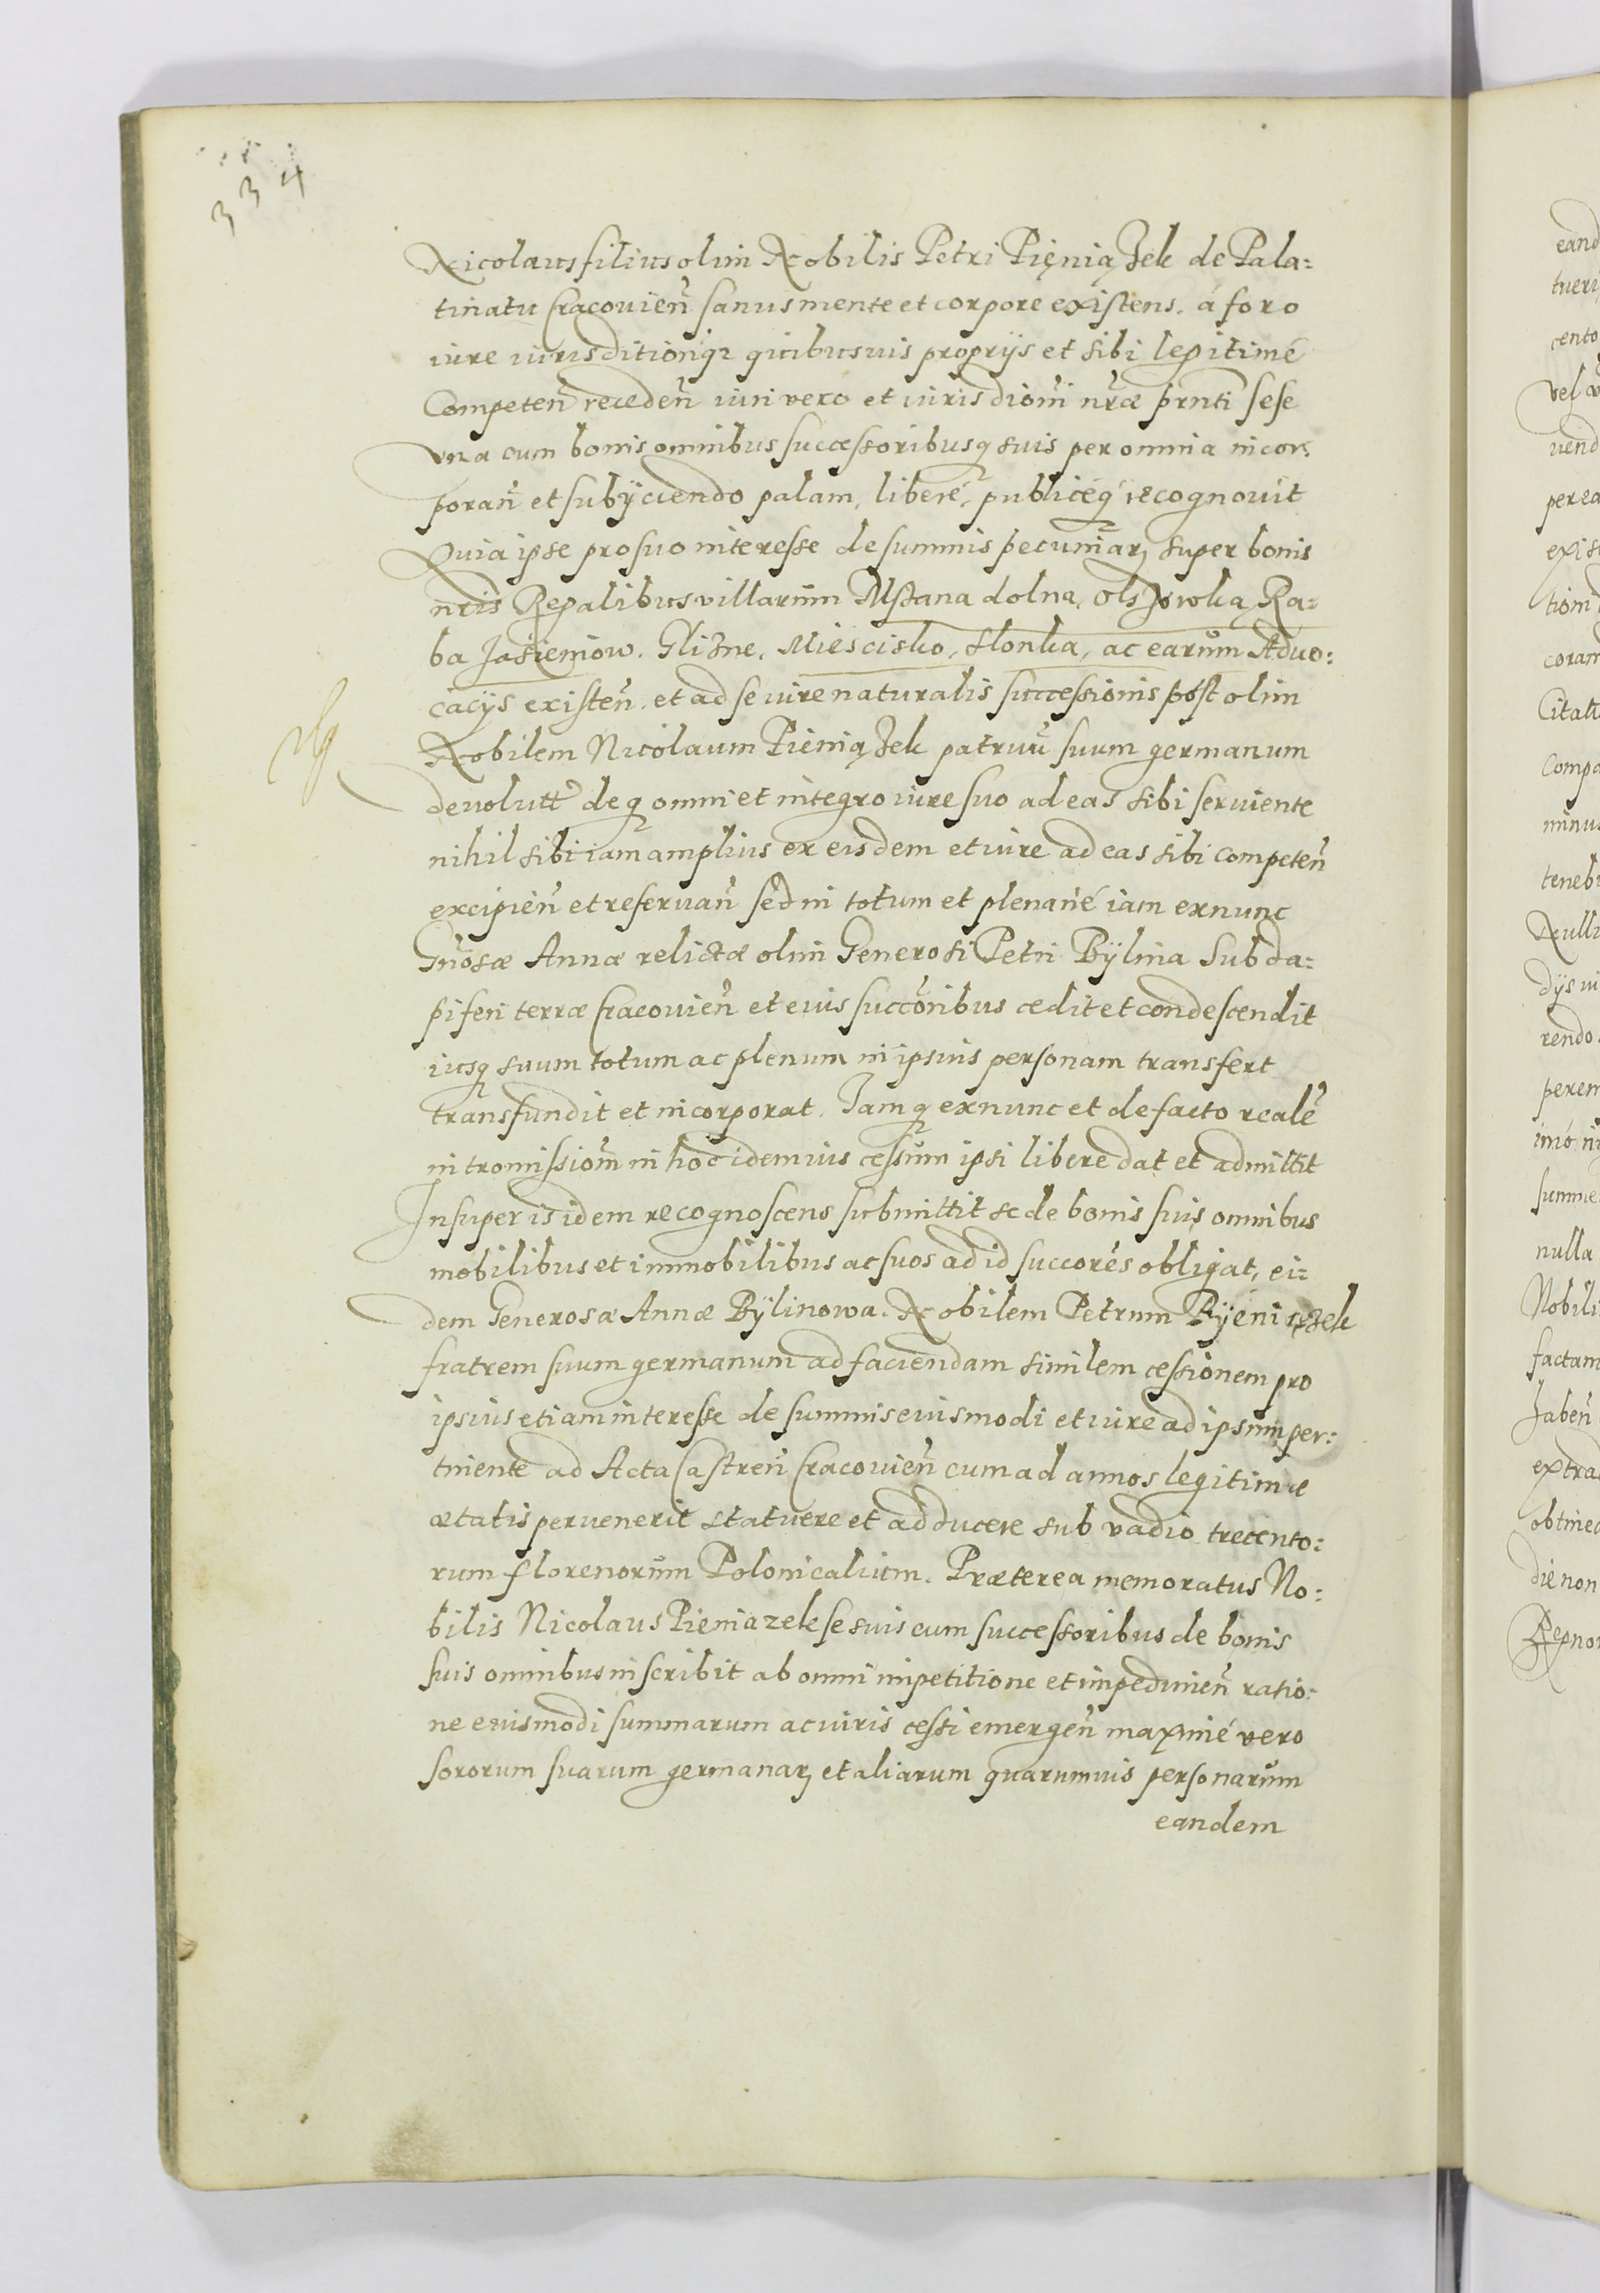 334
Nicolaus filius olim Nobilis Petri PięniąZek de Pala=
tinatu Cracovien̄ sanus mente et corpore existens. á foro
iure iurisditioniq3 quibusvis proprijs et sibi legitimé
Competen̄ receden̄ iuri vero et iurisdioni n̄ræ prn̄ti sese
vna cum bonis omnibus successoribusq3 suis per omnia incor=
poran̄ et subÿciendo palam, liberé, publicéq3 recognovit
Quia ipse pro suo interesse de summis pecuniar3 super bonis
nr̄is Regalibus villarum Mstana dolna, OlsZowka, Ra=
ba Jasieniow. Glisne, Miescisko, Slonka, ac earum Advo=
cacijs existen̄. et ad se iure naturalis successionis post olim
Nobilem Nicolaum PieniąZek patruū suum germanum
devolut̄ deq3 omni et integro iure suo ad eas sibi serviente
nihil sibi iam amplius ex eisdem et iure ad eas sibi competen̄
excipien̄ et reservan̄ sed in totum et plenarié iam exnunc
Gn̄osæ Annæ relictæ olim Generosi Petri Bÿlina Subda=
piferi terræ Cracovien̄ et eius succōribus cedit et condescendit
iusq3 suum totum ac plenum in ipsius personam transfert
transfundit et incorporat. Iamq3 exnunc et de facto realē
intromissiom̄ in hoc idem ius cessum ipsi libere dat et admittit
Insuper is idem recognoscens submittit se de bonis suis omnibus
mobilibus et immobilibus ac suos ad id succorēs obligat, ei=
dem Generosæ Annæ Bÿlinowa. Nobilem Petrum Pÿeniązek
fratrem suum germanum ad faciendam similem cessionem pro
ipsius etiam interesse de summis eiusmodi et iure ad ipsum per=
tinente ad Acta Castren̄ Cracovien̄ cum ad annos legitimæ
ætatis pervenerit statuere et adducere sub vadio trecento=
rum florenorum Polonicalium. Præterea memoratus No=
bilis Nicolaus Pieniazek se suis cum successoribus de bonis
suis omnibus inscribit ab omni impetitione et impedimen̄ ratio=
ne eiusmodi summarum ac iuris cessi emergen̄ maximé vero
sororum suarum germanar3 et aliarum quarumvis personarum
eandem
eand
tueri
cento
vel
vend
per ea
exis
tioni
coram
Citat
compa
minus
tenebi
Null
dijs
rendo
perem
imó
summe
nulla
Nobili
factam
Jaben̄
extra
obtine
die non
Regno